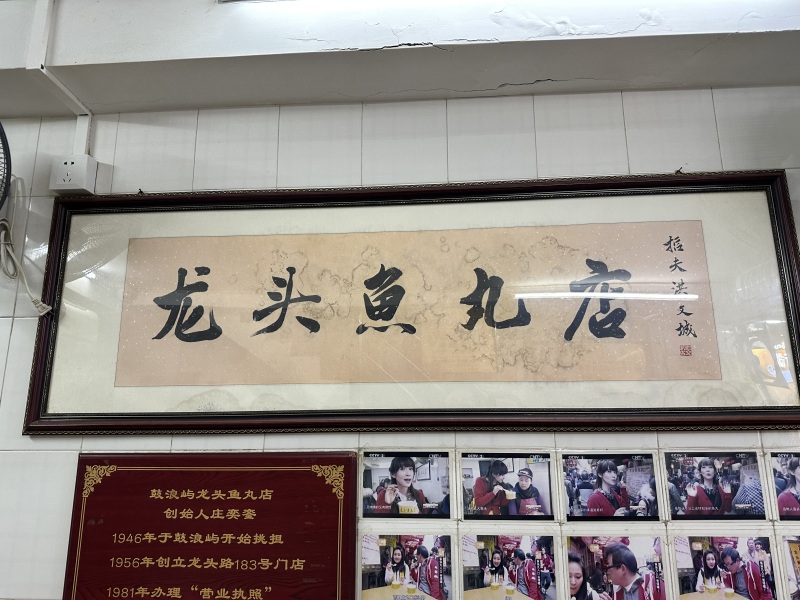 龙头鱼丸店
拓夫洪文城
鼓浪屿龙头鱼丸店
创始人庄奕銮
1946年于鼓浪屿开始挑担
1956年创立龙头路183号门店
1981年办理“营业执照”